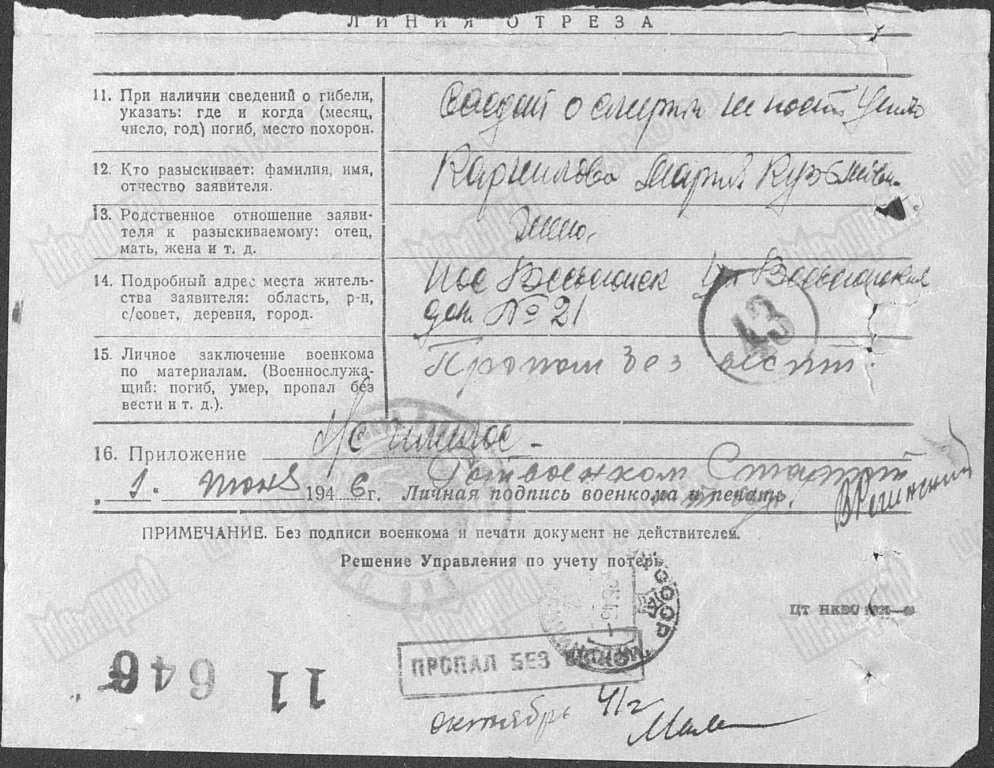 ЛИНИЯ ОТРЕЗА
11. При наличии сведений о гибели,
указать: где и когда (месяц,
число, год) погиб, место похорон.
о смерти не
12. Кто разыскивает: фамилия, имя,
отчество заявителя.
Корнилова Мария Кузьмин.
13. Родственное отношение заяви-
теля к разыскиваемому: отец,
мать, жена и т. д.
Жена.
14. Подробный адрес места житель-
ства заявителя: область, р-н,
с/совет, деревня, город.
дом № 21
43
15. Личное заключение военкома
по материалам. (Военнослужа-
щий: погиб, умер, пропал без
вести и т. д.).
Пропал без вести.
16. Приложение
1. июня 1946 г. Личная подпись военкома и печать.
ПРИМЕЧАНИЕ. Без подписи военкома и печати документ не действителен.
Решение Управления по учету потерь
ПРОПАЛ БЕЗ
октябрь 41 г
646
11
Мемориал